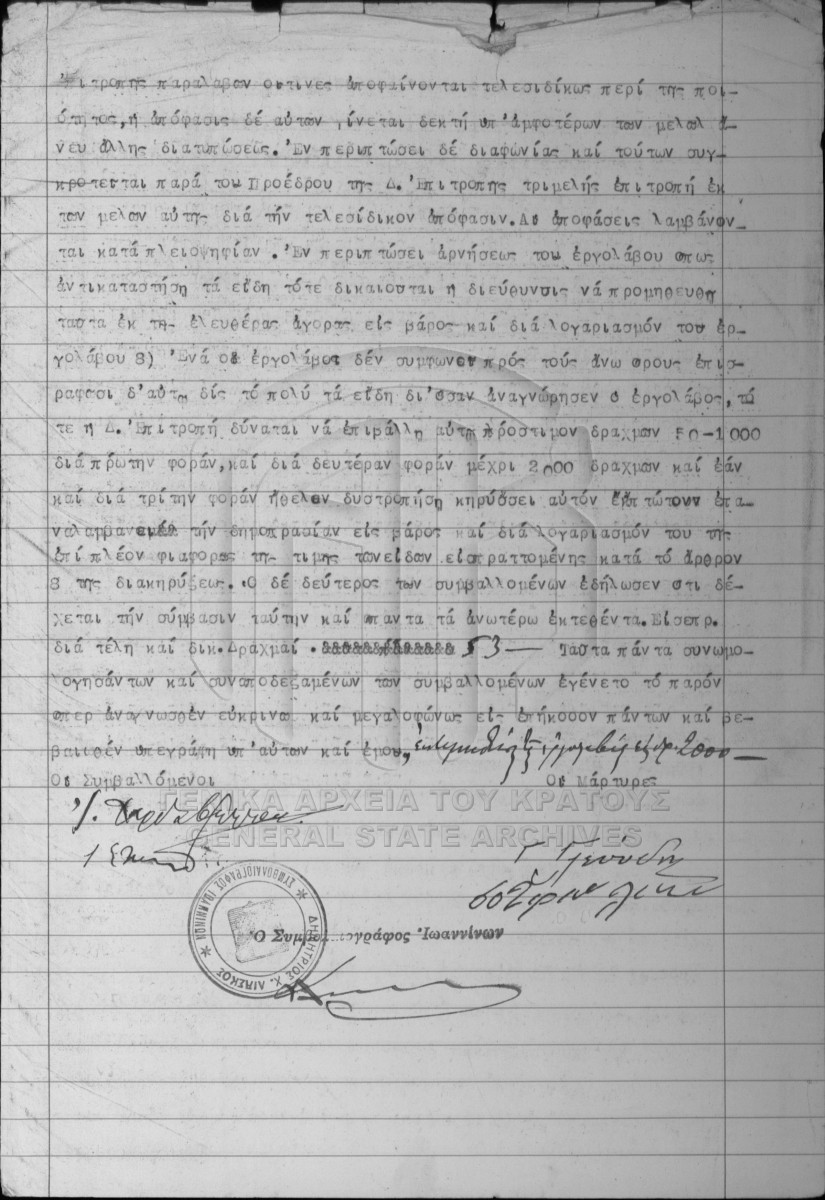 ἐπιτροπῆς παραλαβῶν οιτινες ἀποφαίνονται τελεσιδίκως περί της ποι-
ότητος, ἡ ἀπόφασις δέ αὐτων γίνεται δεκτή υπ'ἀμφοτέρων των μελωλ ἄ-
νευ ἄλλης διατυπώσεϊς. Ἐν περιπτώσει δέ διαφωνίας καί τούτων συγ-
κροτειται παρά του Προέδρου της Δ. Ἐπιτροπης τριμελής ἐπιτροπή ἐκ
των μελων αὐτης διά τήν τελεσίδικον ἀπόφασιν. Αι ἀποφάσεις λαμβάνον-
ται κατά πλειοψηφίαν . Ἐν περιπτώσει ἀρνήσεως του ἐργολάβου οπως
ἀντικαταστήση τά εἴδη τότε δικαιουται η διεύθυνσις νά προμηθευθη
ταυτα ἐκ της ἐλευθέρας ἀγορας εἰς βάρος καί διά λογαριασμόν του ἐρ-
γολάβου 8) Ἐνά οἱ ἐργολάβοι δέν συμφωνεν πρός τούς ἄνω ορους ἐπισ-
ραφωσι δ'αὐτω δίς τό πολύ τά εἴδη δι'οσαν ἀναγνώρησεν ο ἐργολάβος, τό
τε η Δ. Ἐπιτροπή δύναται νά ἐπιβάλλη αὐτω πρόστιμον δραχμων 50-1000
διά πρώτην φοράν, καί διά δευτέραν φοράν μέχρι 2000 δραχμων καί ἐάν
καί διά τρίτην φοράν ἤθελεν δυστροπήση κηρύσσει αὐτόν ἔκπτωτον ἐπα-
ναλαμβανει τήν δημοπρασίαν εἰς βάρος καί διά λογαριασμόν του της
ἐπί πλέον φιαφορας της τιμης των εἰδων εἰσπραττομένης κατά τό ἄρθρον
8 της διακηρύξεως. Ο δέ δεύτερος των συμβαλλομένων ἐδήλωσεν οτι δέ-
χεται τήν σύμβασιν ταύτην καί απαντα τά ἀνωτέρω ἐκτεθέντα. Εἰσεπρ.
διά τέλη καί δικ. Δραχμαί 53 — Ταυτα πάντα συνωμο-
λογησάντων καί συναποδεξαμένων των συμβαλλομένων ἐγένετο τό παρόν
οπερ ἀναγνωσθέν εὐκρινως καί μεγαλοφώνως εἰς ἐπήκοον πάντων καί βε-
βαιωθέν υπεγράφη υπ'αὐτων καί ἐμου, 2000 —
Οι Συμβαλλόμενοι Οι Μάρτυρες
ΓΕΝΙΚΑ ΑΡΧΕΙΑ ΤΟΥ ΚΡΑΤΟΥΣ
GENERAL STATE ARCHIVES
Ὁ Συμβολαιογράφος Ἰωαννίνων
ΔΗΜΗΤΡΙΟΣ Χ. ΛΙΑΣΚΟΣ
ΣΥΜΒΟΛΑΙΟΓΡΑΦΟΣ ΙΩΑΝΝΙΝΩΝ